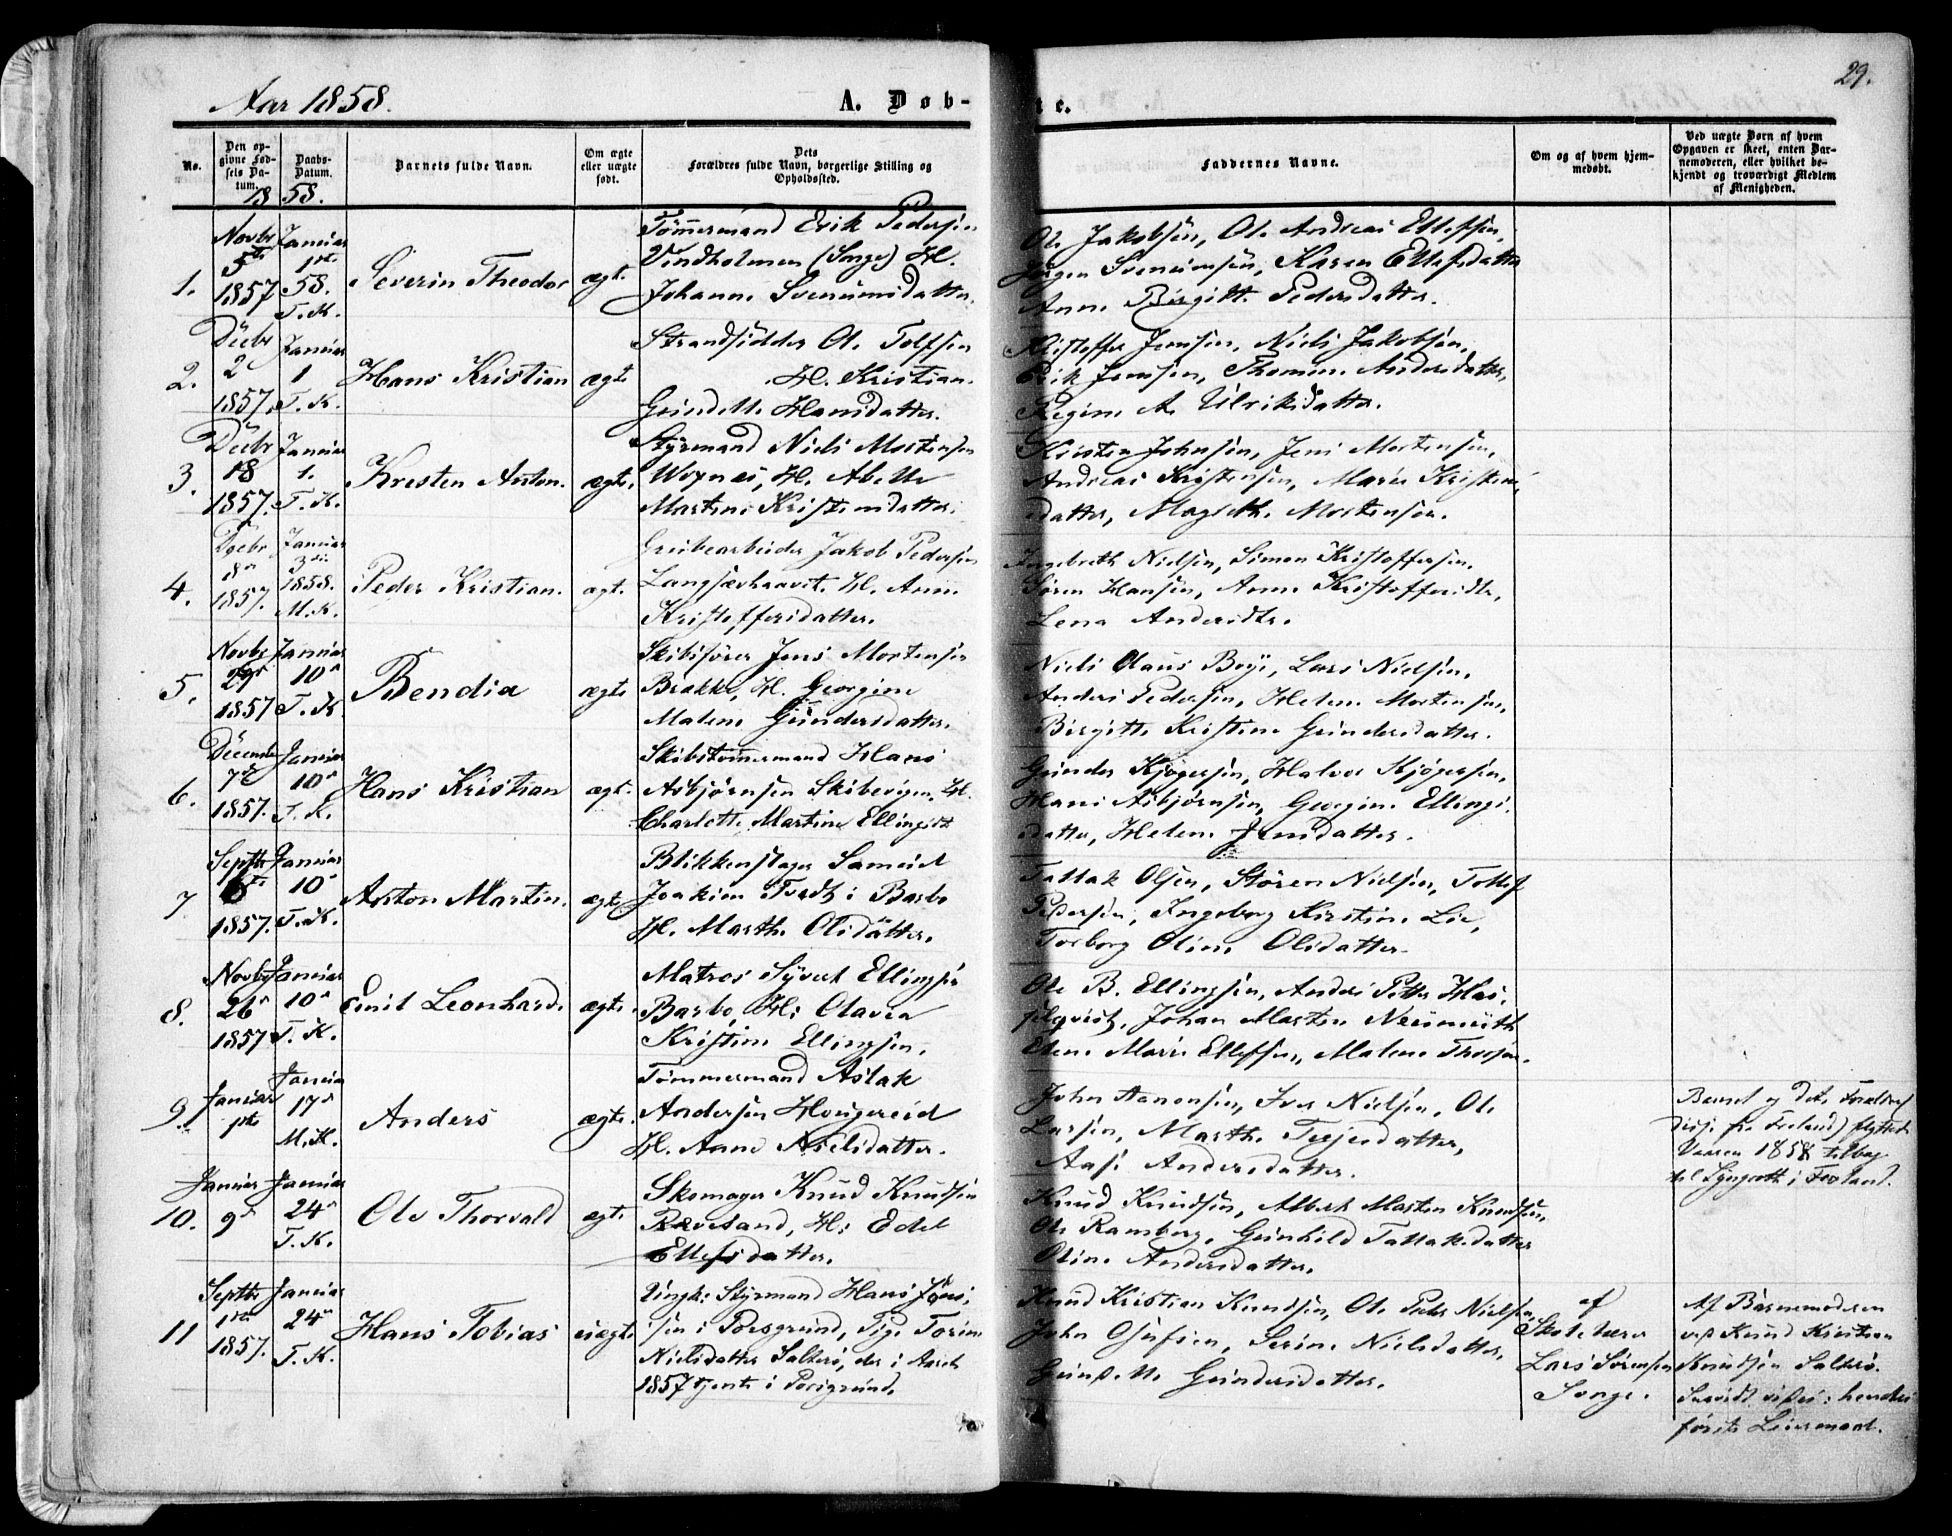 29.
Aar 1858.
A. Døb-
te.
No.
Den op-
givne Fød-
sels Da-
tum.
Daabs-
Datum.
Barnets fulde Navn.
Om ægte
eller uægte
født.
Dets
Forældres fulde Navn, borgerlige Stilling og
Opholdssted.
Faddernes Navne.
Om og af hvem hjem-
medøbt.
Ved uægte Børn af hvem
Opgaven er skeet, enten Bar-
nemoderen, eller hvilket be-
kjendt og troværdigt Medlem
af Menigheden.
18 58.
1.
Novbr
5te
1857
Januar
1ste
58.
T. K.
Severin Theodor
ægt.
Tømmermand Erik Pedersen
Vindholmen (Songe) H.
Johanne Svenumsdatter.
Ole Jakobsen, Ole Andreas Ellefsen,
Jørgen Svenumsen, Karen Ellefsdatter
Anne Birgitte Pedersdatter.
2.
Decbr
2
1857.
Januar
1
T. K.
Hans Kristian
ægte
Strandsidder Ole Tolfsen
H. Kristiane
Gundelle Hansdatter.
Kristoffer Jensen, Niels Jakobsen,
Erik Jensen, Thomine Andersdatter,
Regine A. Ulriksdatter.
3.
Decbr
18
1857.
Januar
1.
T. K.
Kresten Anton.
ægte.
Styrmand Niels Mortensen
H. Abelle
Martine Kristensdatter.
Kristen Johnsen, Jens Mortensen,
Andreas Kristensen, Marie Kristens-
datter, Magrethe Mortensen.
4.
Decbr
8de
1857.
Januar
3die
1858.
M. K.
Peder Kristian.
ægt.
Grubearbeider Jakob Pedersen
Langsævhravet. H. Anne
Kristoffersdatter.
Ingebreth Nielsen, Simon Kristoffersen.
Søren Hansen, Anne Kristoffersdtr,
Lena Andersdtr.
5.
Novbr
29de
1857
Januar
10de
T. K.
Bendia
ægte
Skibsfører Jens Mortensen
Brække, H. Georgine
Malene Gundersdatter.
Niels Olaus Boye, Lars Nielsen,
Anders Pedersen, Helene Mortensen,
Birgitte Kristine Gundersdatter.
6.
Decembr
7de
1857.
Januar
10de
T. K.
Hans Kristian
ægt.
Skibstømmermand Hans
Asbjørnsen Skibevigen. H.
Charlotte Martine Ellingsdtr
Gunder Kjøgersen, Halvor Kjøgersen,
Hans Asbjørnsen, Georgine Ellings-
datter, Helene Jensdatter.
7
Septbr
6te
1857.
Januar
10de
T. K.
Anton Martin.
ægte
Blikkenslager Samuel
Joakim Tvedt i Barbo
H. Marthe Olsdatter.
Tallak Olsen, Støren Nielsen, Tollef
Pedersen, Ingeborg Kirstine Lie,
Torborg Oline Olsdatter.
8.
Novbr
26de
1857
Januar
10de
T. K.
Emil Leonhard.
ægte.
Matros Syvert Ellingsen
Barbo, H: Olavia
Kristine Ellingsen.
Ole B. Ellingsen, Anders Petter Has-
selqvist, Johan Martin Neumuth
Elene Marie Ellefsen, Malene Thorsen.
9.
Januar
1ste
Januar
17de
M. K.
Anders
ægte.
Tømmermand Aslak
Andersen Hougereid
H. Anne Nielsdatter.
John Aanonsen, Iver Nielsen, Ole
Larsen, Marthe Terjesdatter,
Aase Andersdatter.
Barnet og dets Forældre
(disse fra Froland) flyttede
Vaaren 1858 tilbage
til i Froland.
10.
Januar
9de
Januar
24de
T. K.
Ole Thorvald
ægt.
Skomager Knud Knudsen
Rævesand, H: Edel
Ellefsdatter.
Knud Knudsen, Albert Martin Knudsen,
Ole Ramberg, Gunhild Tallaksdatter
Oline Andersdatter.
11
Septbr
1ste
1857.
Januar
24de
T. K.
Hans Tobias
uægte
Ungk: Styrmand Hans Jans-
sen i Porsgrund, Pige Torine
Nielsdatter Salterø, der i Aaret
1857 tjente i Porsgrund.
Knud Kristian Knudsen, Ole Peter Nielsen,
John Osufsen, Serine Nielsdatter,
Gunelle Gundersdatter.
af
Skolelærer
Lars Sørensen
Songe.
Af Barnemoderen
Knud Kristian
Knudsen Salterø.
hendes
første Leiermaal.